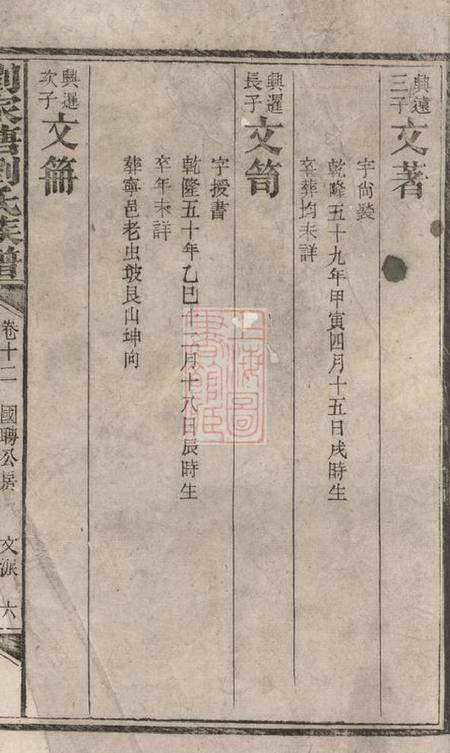 興遠
三子
文著
字尚裝
乾隆五十九年甲寅四月十五日戌時生
卒葬均未詳
興暹
長子
文笥
字授書
乾隆五十年乙巳十二月十八日辰時生
卒年未詳
葬寧邑老虫坡艮山坤向
興暹
次子
文箫
劉家塘劉氏族譜
卷十二
國聘公房
文派
六
上海圖書館藏